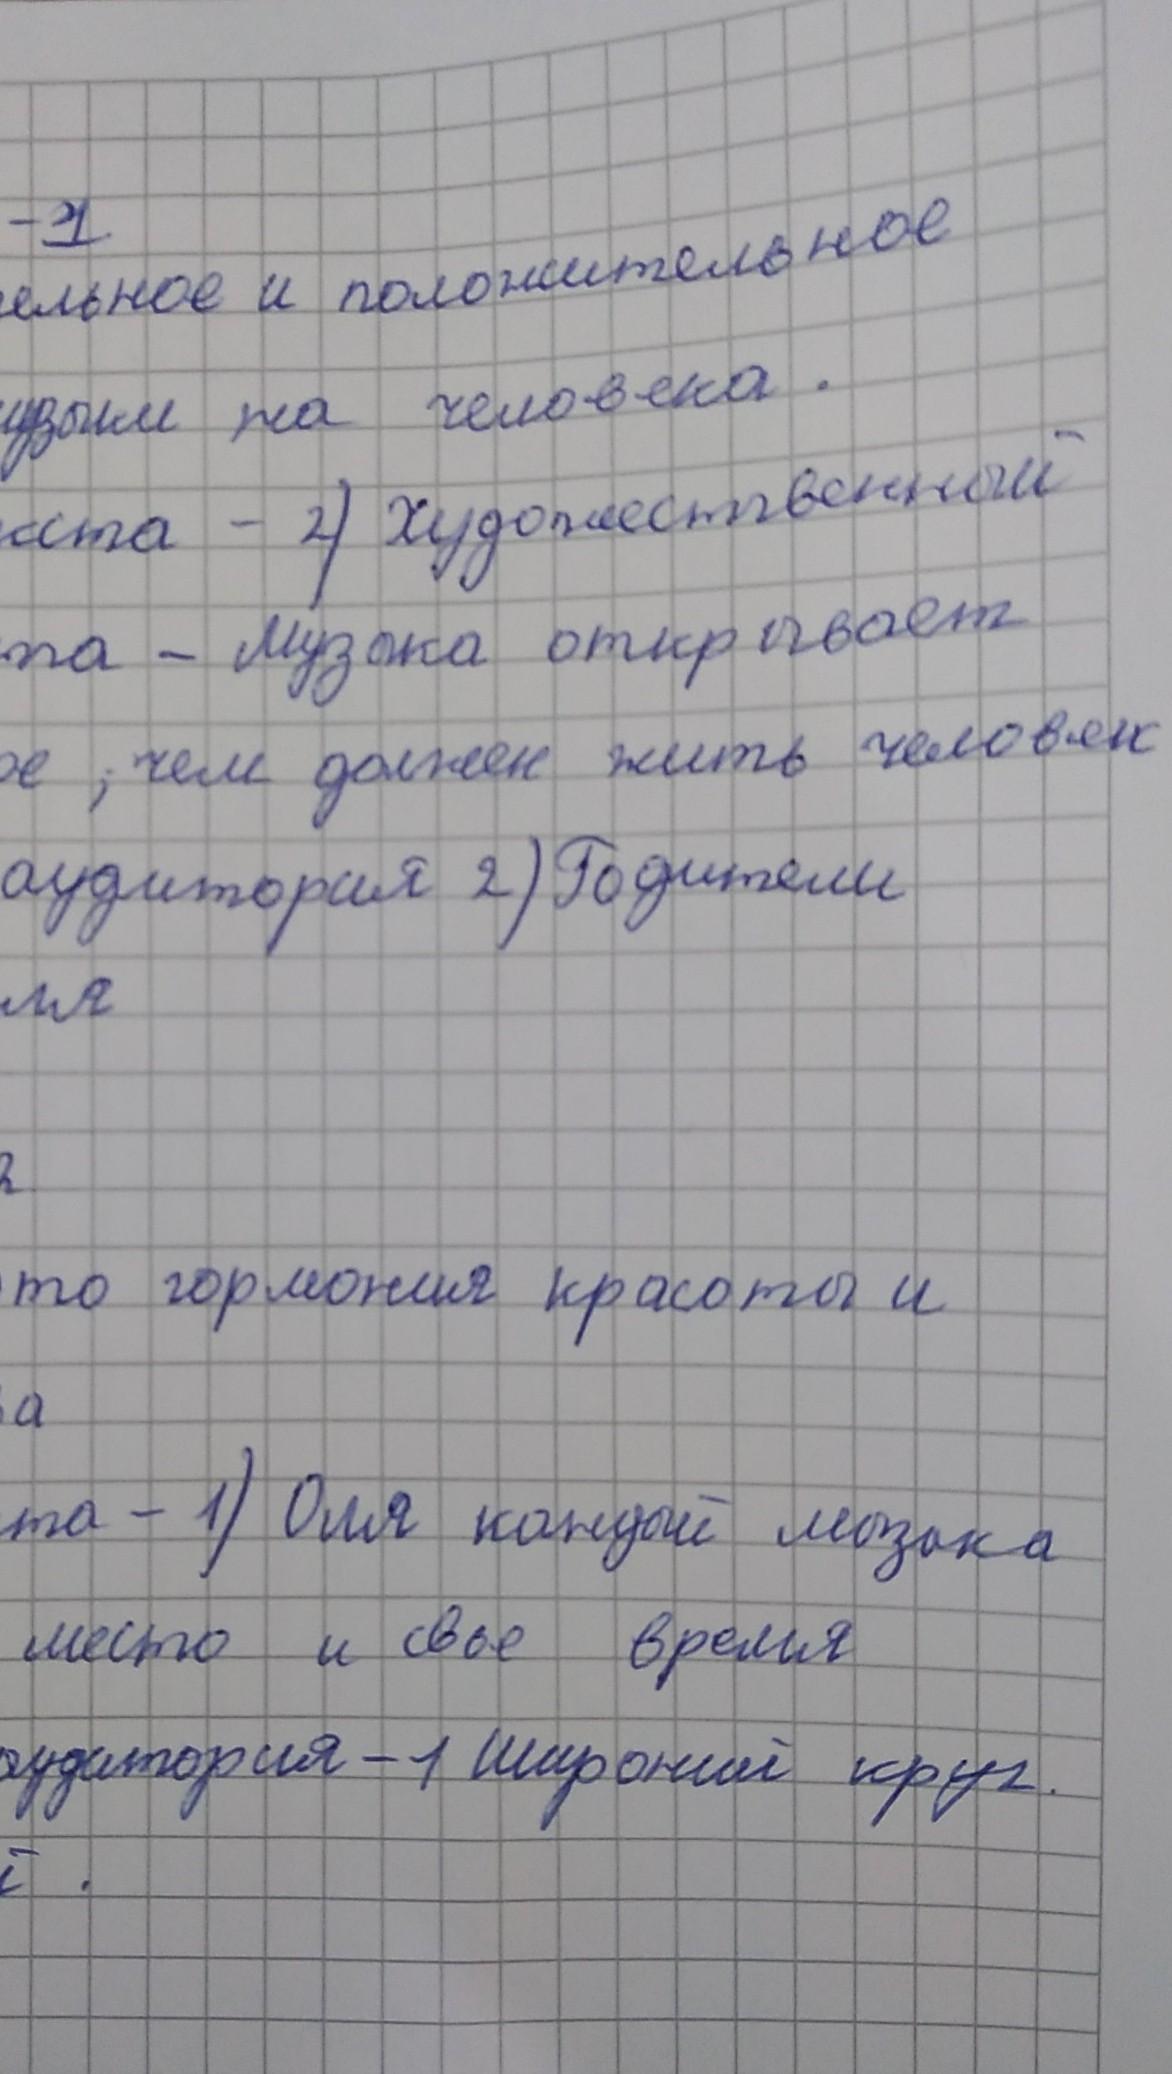 -1
ельное и положительное
узыки на человека.
кста - 2) Художественный
та - Музыка открывает
ое, чем должен жить человек
аудитория 2) Родители
еля
2
это гормония красоты и
ва
ста - 1) Для каждый мозыка
место и свое время
аудитория - 1 Широкий круг.
й.